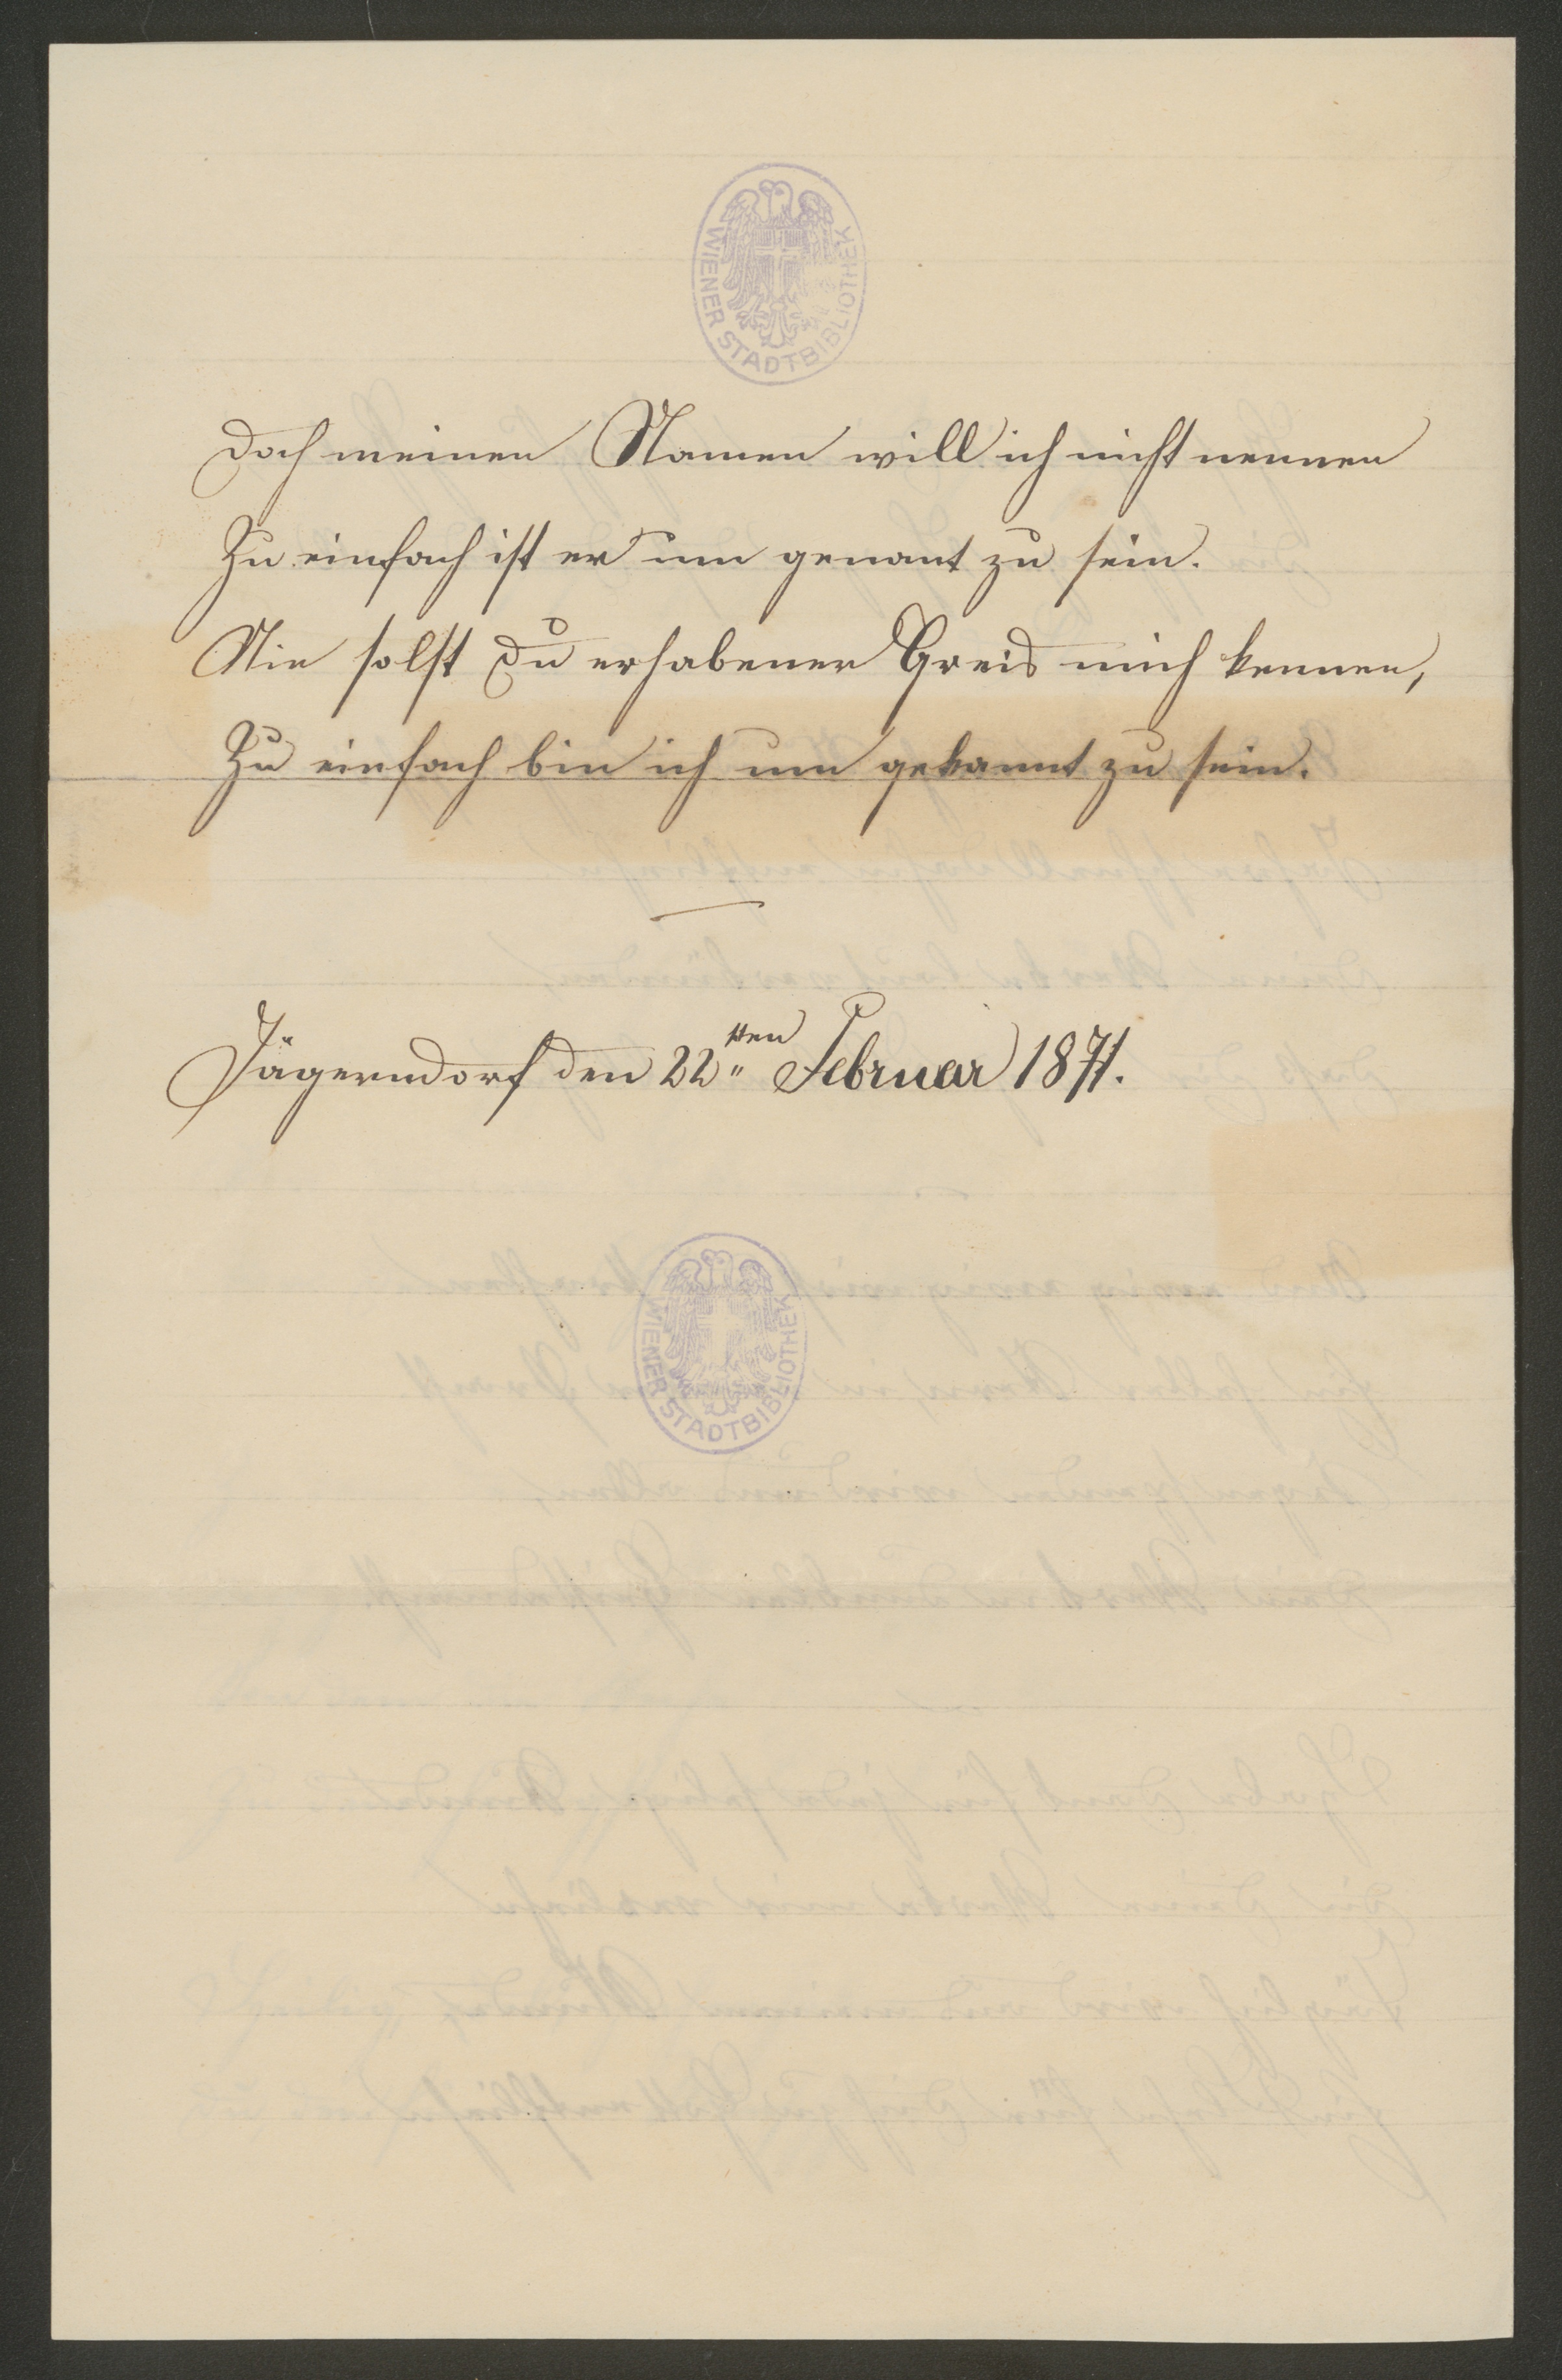 WIENER STADTBIBLIOTHEK
Doch meinen Namen will ich nicht nennen
Zu einfach ist er um genant zu sein.
Nie solst Du erhabener Greis mich kennen,
Zu einfach bin ich um gekannt zu sein.
Jägerndorf den 22ten Februar 1871.
WIENER STADTBIBLIOTHEK